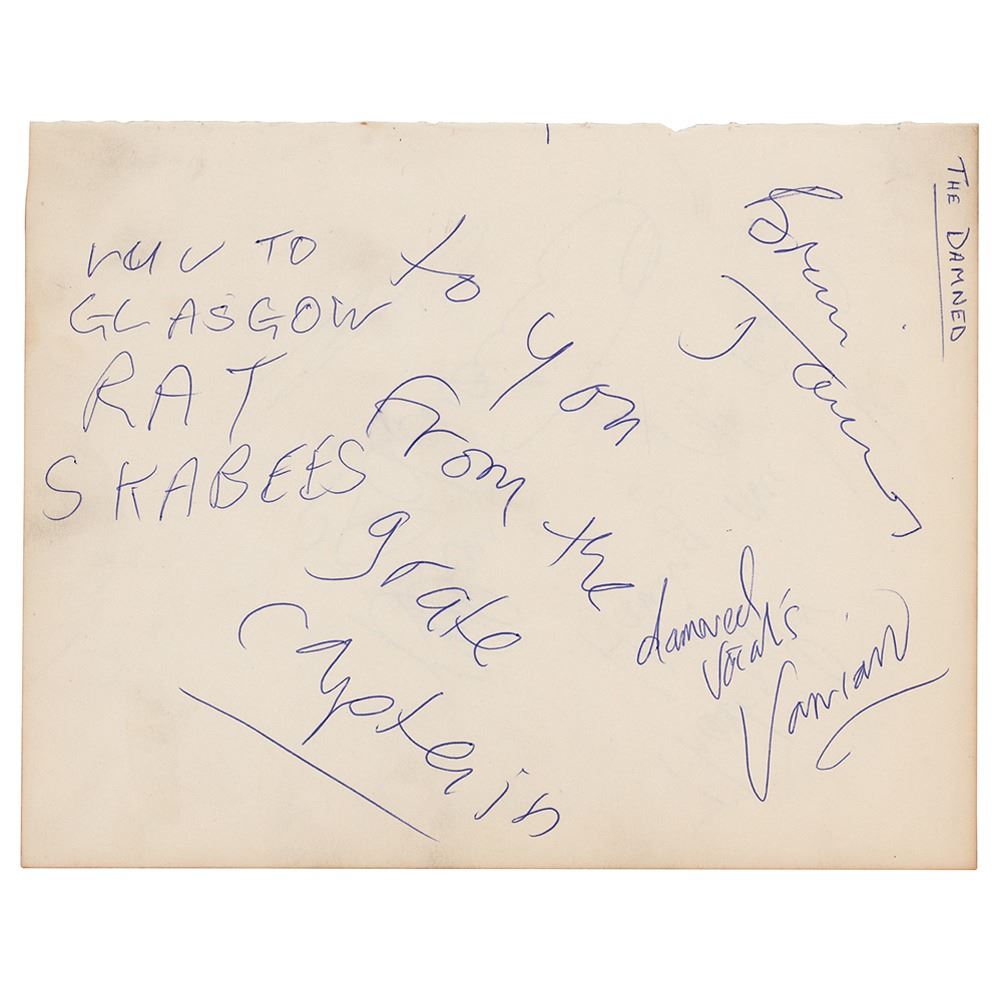 THE DAMNED
TO
GLASGOW
RAT
SKABEES
to
you
from the
grate
Captain
Brian
James
damned
vocal's
Vanian